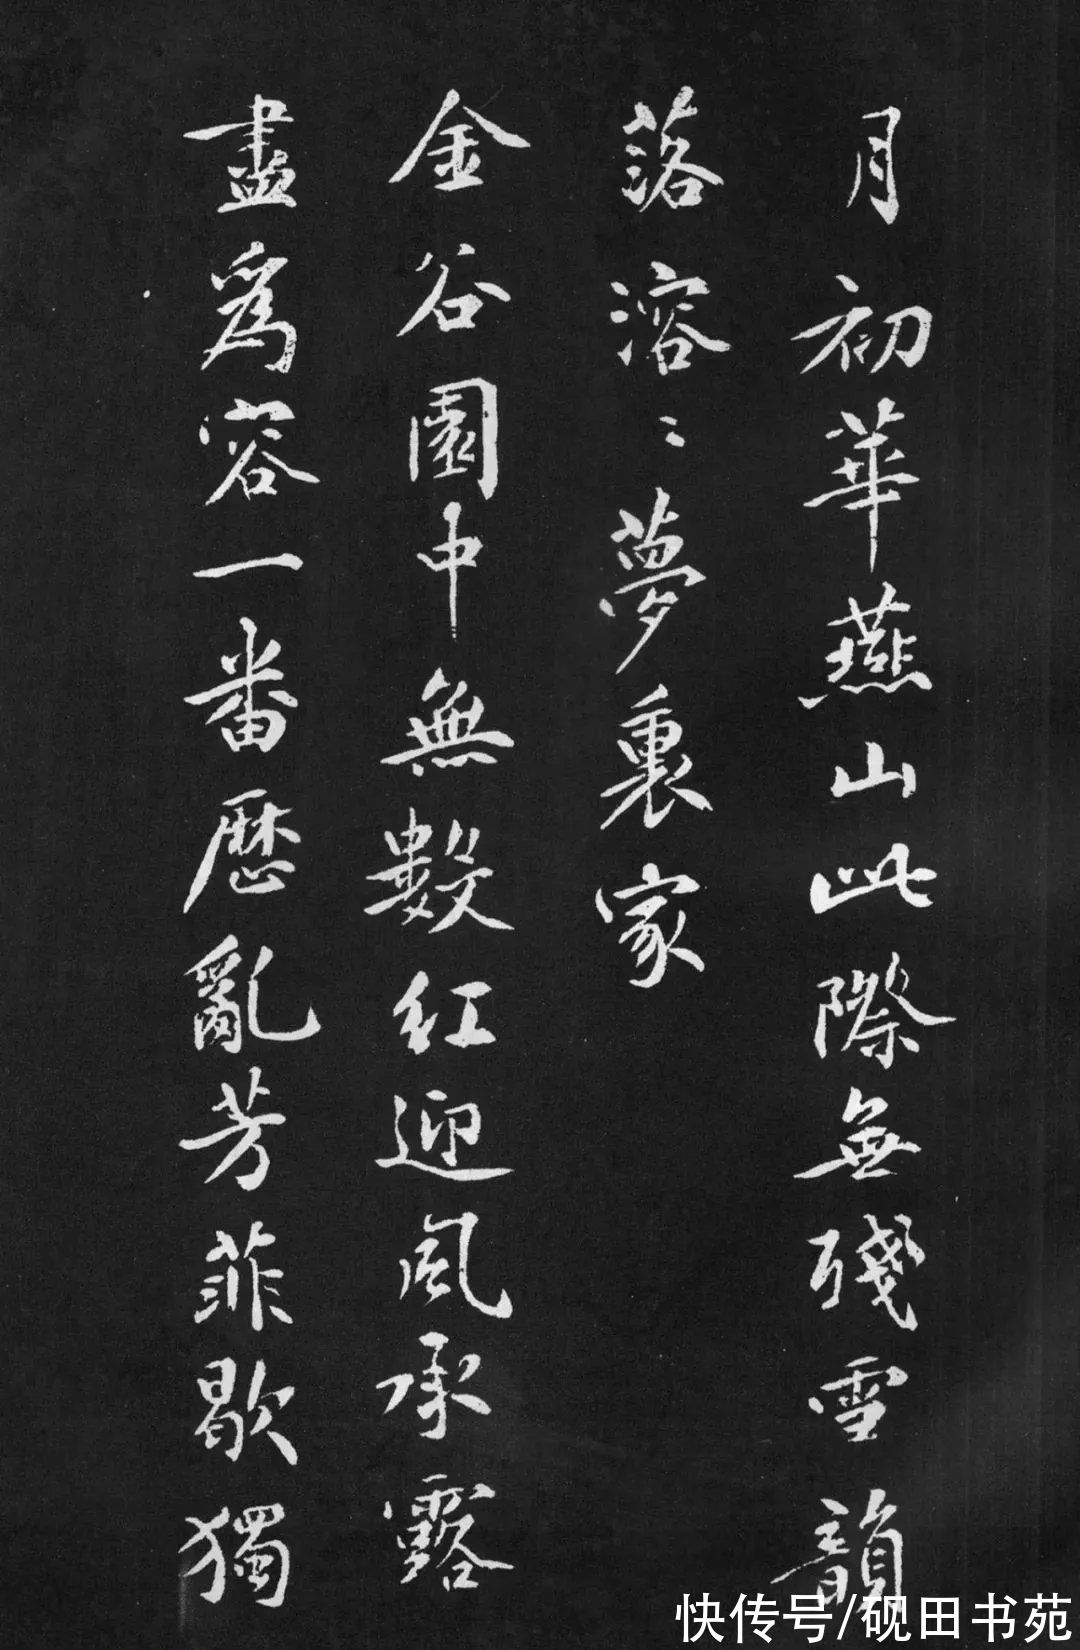 月初華燕山此際無殘雪韻
落溶〻夢裏家
金谷園中無數紅迎風承露
盡為容一番歷亂芳菲歇獨
快传号/砚田书苑